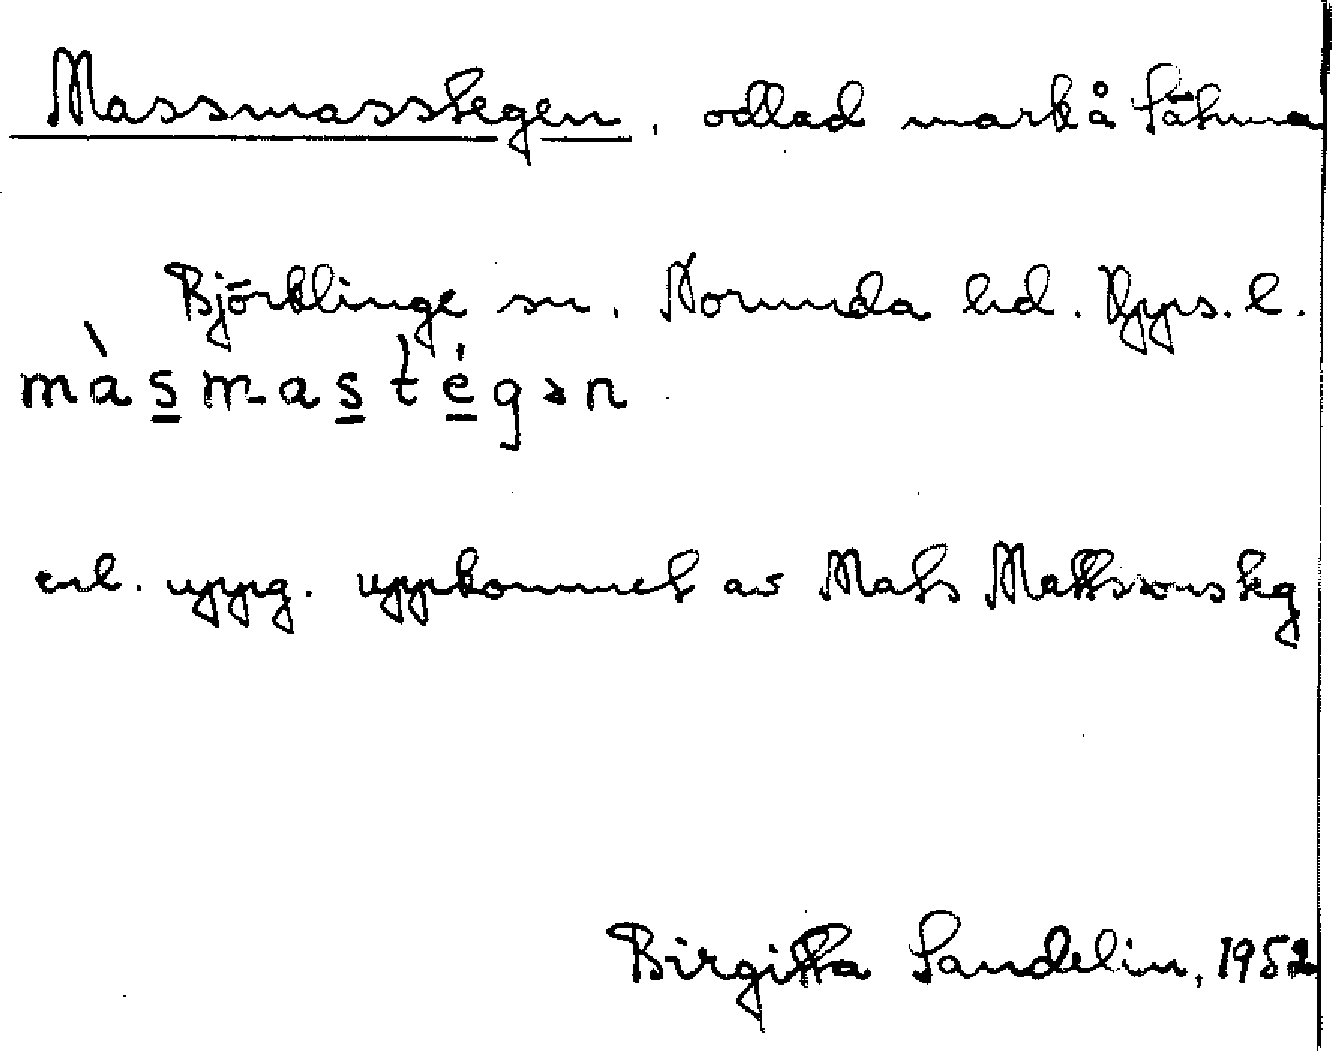 Massmasstegen, odlad mark å Sätuna
Björklinge sn. Norunda hd. Upps. l.
màsmastégən
enl. uppg. uppkommet av Mats Matssonsteg
Birgitta Sandelin, 1952